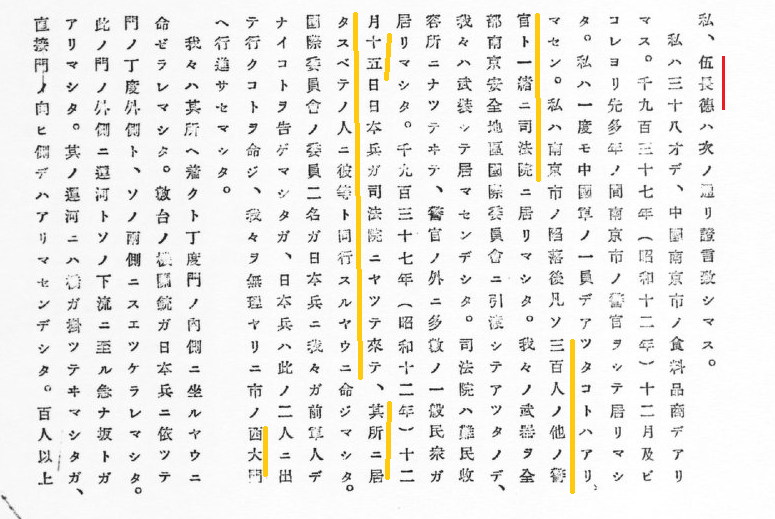 私、伍長德ハ次ノ通リ證言致シマス。
私ハ三十八才デ、中國南京市ノ食料品商デアリ
マス。千九百三十七年（昭和十二年）十二月及ビ
コレヨリ先多年ノ間南京市ノ警官ヲシテ居リマシ
タ。私ハ一度モ中國軍ノ一員デアツタコトハアリ
マセン。私ハ南京市ノ陷落後凡ソ三百人ノ他ノ警
官ト一緒ニ司法院ニ居リマシタ。我々ノ武器ヲ全
部南京安全地區國際委員會ニ引渡シテアツタノデ、
我々ハ武裝シテ居マセンデシタ。司法院ハ難民收
容所ニナツテヰテ、警官ノ外ニ多數ノ一般民衆ガ
居リマシタ。千九百三十七年（昭和十二年）十二
月十五日日本兵ガ司法院ニヤツテ來テ、其所ニ居
タスベテノ人ニ彼等ト同行スルヤウニ命ジマシタ。
國際委員會ノ委員二名ガ日本兵ニ我々ガ前軍人デ
ナイコトヲ告ゲマシタガ、日本兵ハ此ノ二人ニ出
テ行クコトヲ命ジ、我々ヲ無理ヤリニ市ノ西大門
ヘ行進サセマシタ。
我々ハ其所ヘ着クト丁度門ノ內側ニ坐ルヤウニ
命ゼラレマシタ。數台ノ機關銃ガ日本兵ニ依ツテ
門ノ丁度外側ト、ソノ兩側ニスエツケラレマシタ。
此ノ門ノ外側ニ運河トソノ下流ニ至ル急ナ坂トガ
アリマシタ。其ノ運河ニハ橋ガ掛ツテヰマシタガ、
直接門ノ向ヒ側デハアリマセンデシタ。百人以上